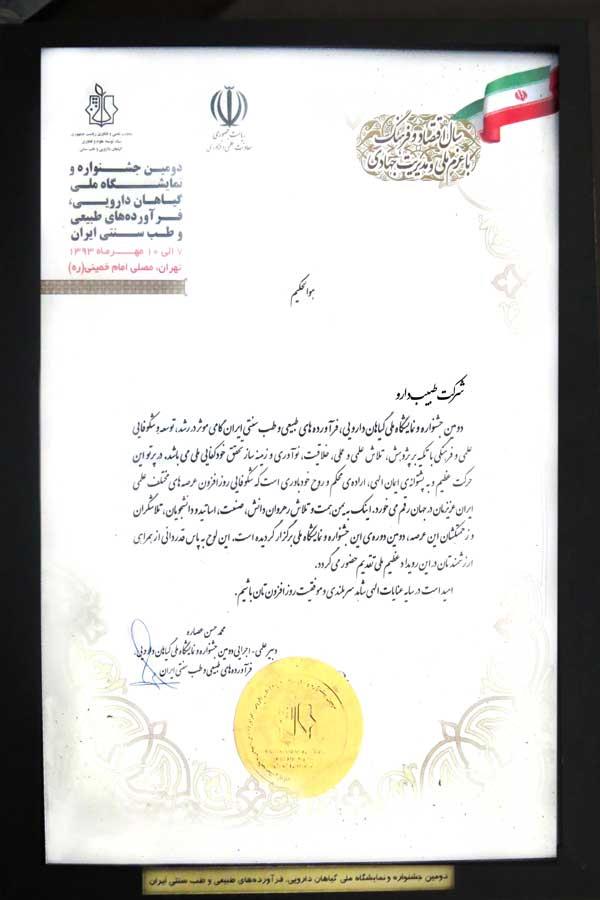 سال اقتصاد و فرهنگ
با عزم ملی و مدیریت جهادی
ریاست جمهوری
معاونت علمی و فناوری
معاونت علمی و فناوری ریاست جمهوری
ستاد توسعه علوم و فناوری
گیاهان دارویی و طب سنتی
دومین جشنواره و
نمایشگاه ملی
گیاهان دارویی،
فرآورده‌های طبیعی
و طب سنتی ایران
۷ الی ۱۰ مهرماه ۱۳۹۳
تهران، مصلی امام خمینی(ره)
هوالحکیم
شرکت طبیب دارو
دومین جشنواره و نمایشگاه ملی گیاهان دارویی، فرآورده های طبیعی و طب سنتی ایران گامی موثر در رشد، توسعه و شکوفایی
علمی و فرهنگی با تکیه بر پژوهش، تلاش علمی و عملی، خلاقیت، نوآوری و زمینه ساز تحقق خودکفایی ملی می باشد. در پرتو این
حرکت عظیم و به پشتوانه‌ی ایمان الهی، اراده‌ی محکم و روح خودباوری است که شکوفایی روزافزون عرصه های مختلف علمی
ایران عزیزمان در جهان رقم می خورد. اینک به یمن همت و تلاش رهروان دانش، صنعت، اساتید و دانشجویان، تلاشگران
و زحمتکشان این عرصه، دومین دوره‌ی این جشنواره و نمایشگاه ملی برگزار گردیده است. این لوح به پاس قدردانی از همراهی
ارزشمندتان در این رویداد عظیم ملی تقدیم حضور می گردد.
امید است در سایه عنایات الهی شاهد سربلندی و موفقیت روزافزون تان باشیم.
محمد حسن عصاره
دبیر علمی - اجرایی دومین جشنواره و نمایشگاه ملی گیاهان دارویی،
فرآورده های طبیعی و طب سنتی ایران
دومین جشنواره و نمایشگاه ملی گیاهان دارویی، فرآورده‌های طبیعی و طب سنتی ایران